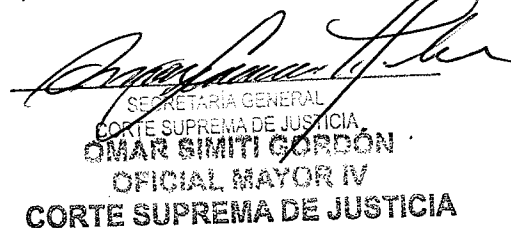 SECRETARÍA GENERAL
CORTE SUPREMA DE JUSTICIA
OMAR SIMITI GORDÓN
OFICIAL MAYOR IV
CORTE SUPREMA DE JUSTICIA